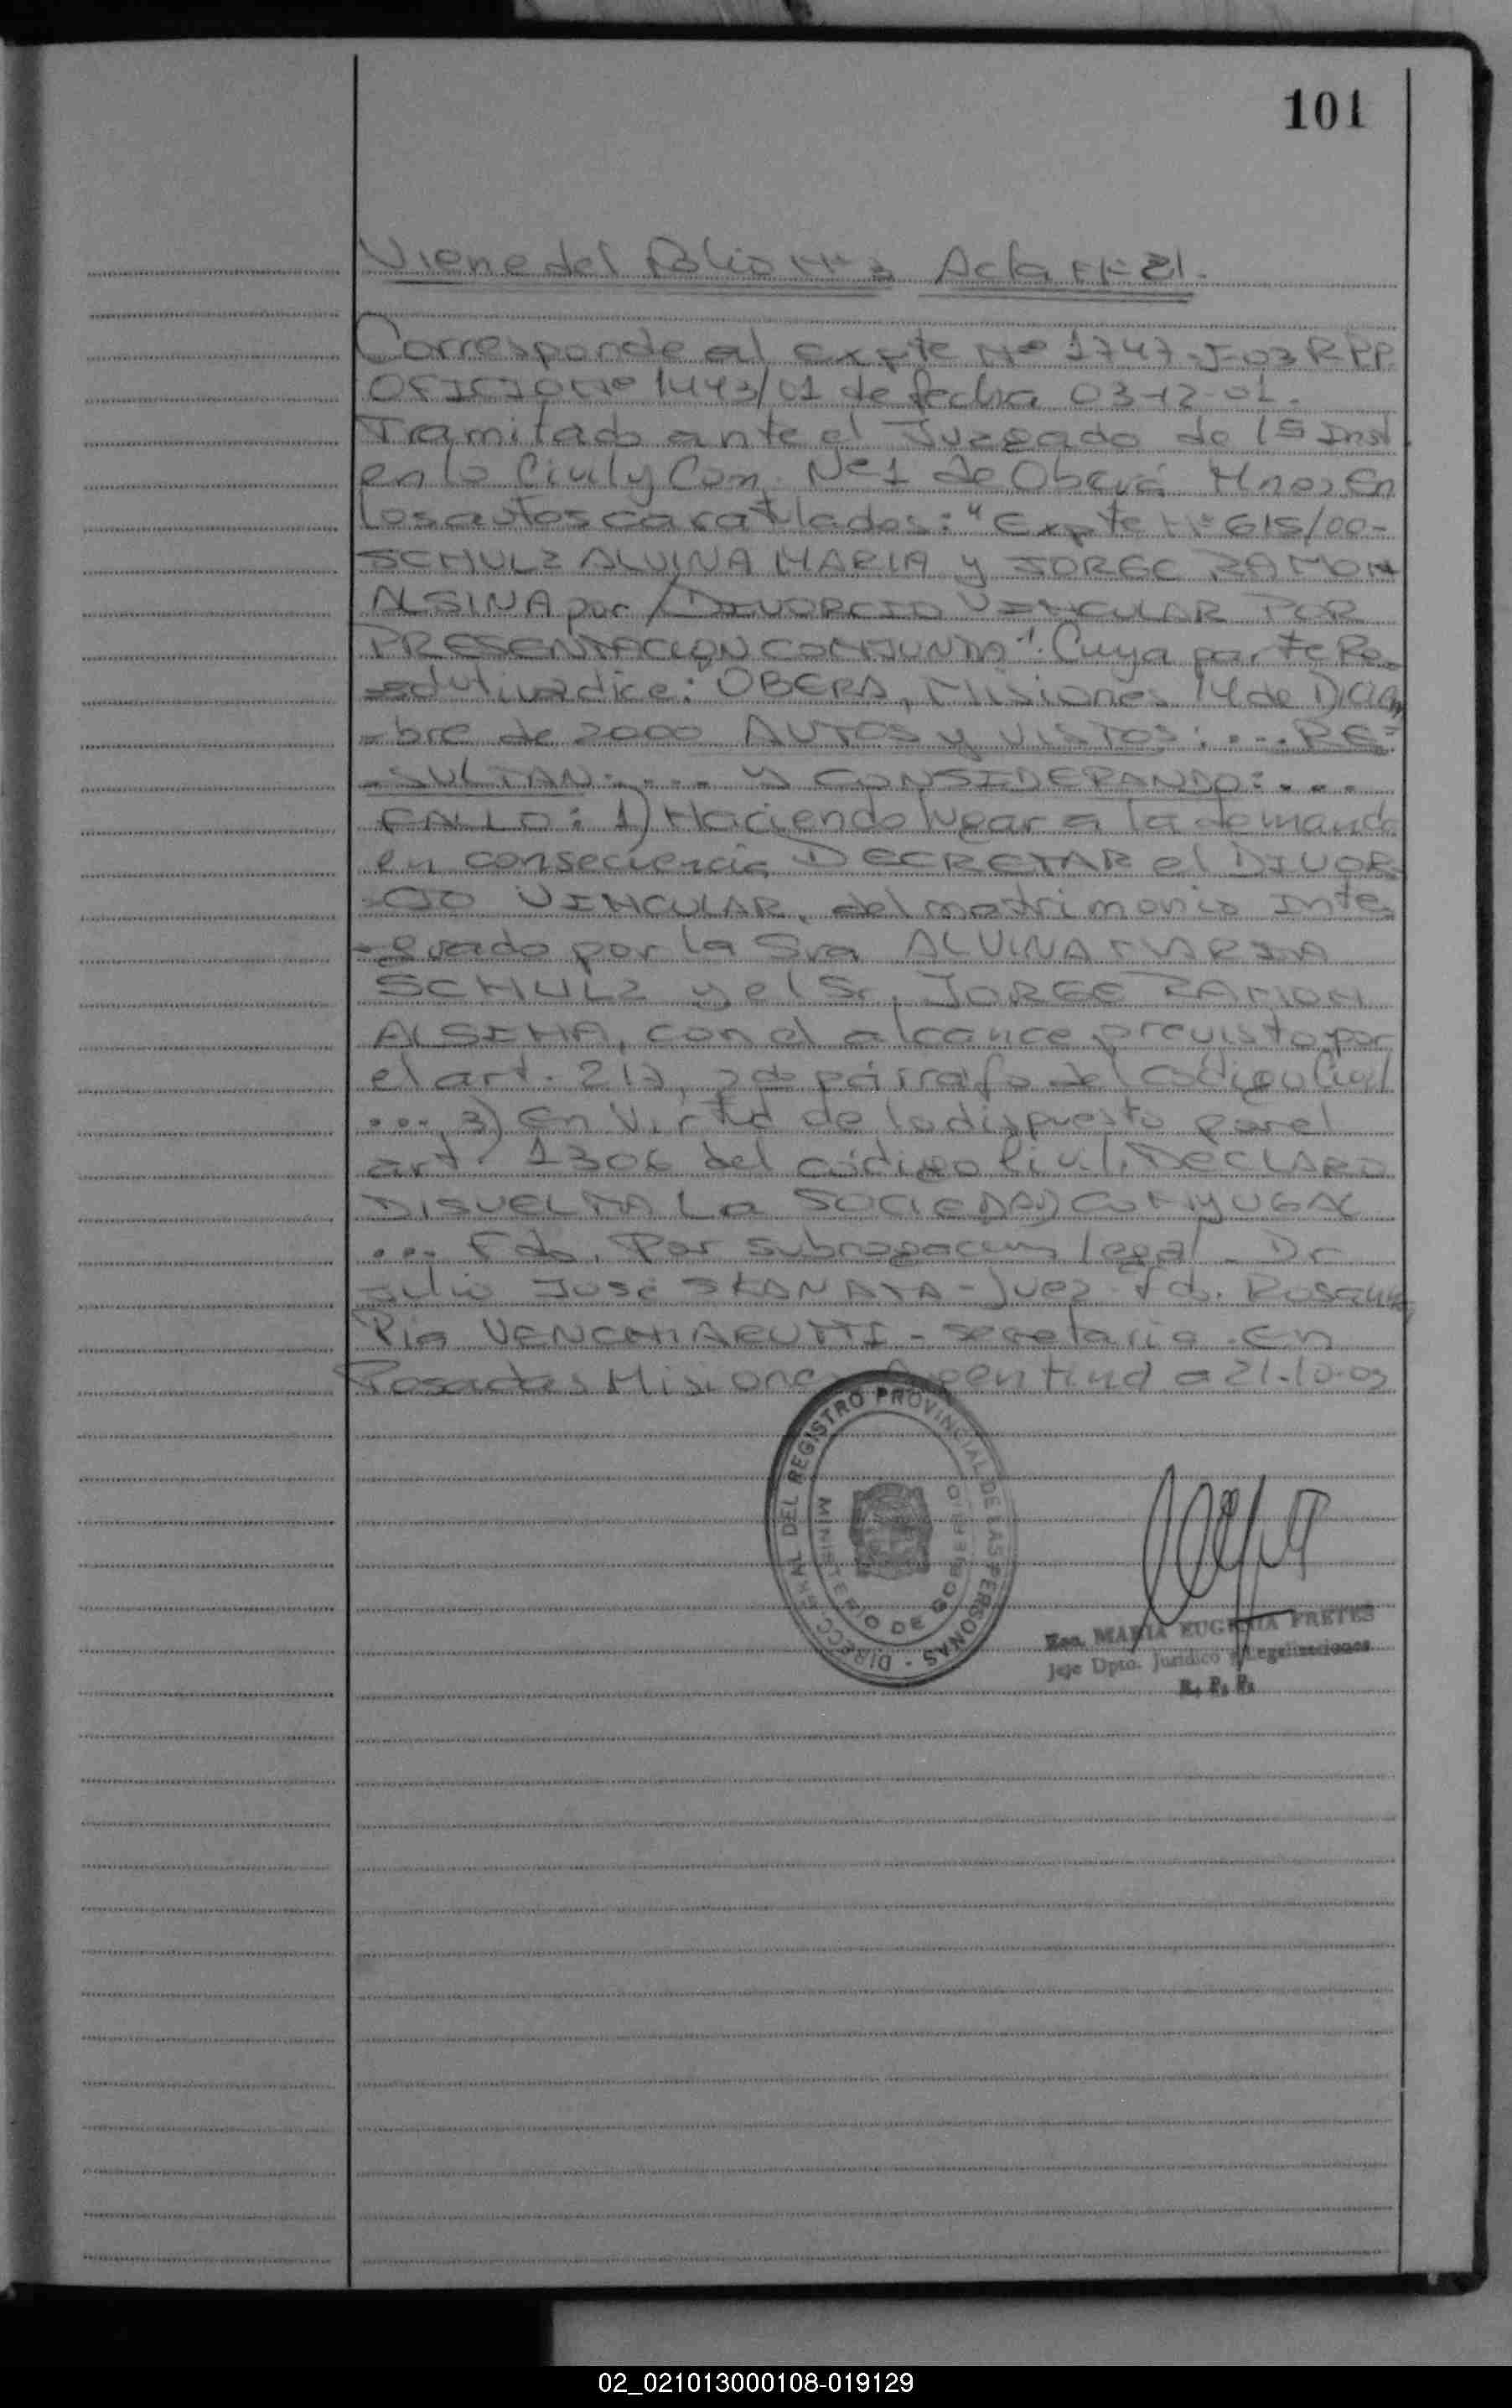 101
Viene del Folio Nº 3 Acta Nº 21.
Corresponde al Expte Nº 1747-J-03 R.P.P.
OFICIO Nº 1443/01 de fecha 03-12-01.
Tramitado ante el Juzgado de 1ª Inst.
en lo Civil y Com. Nº 1 de Oberá Mnes. En
los autos caratulados: "Expte Nº 615/00-
SCHULZ ALVINA MARIA y JORGE RAMON
ALSINA por DIVORCIO VINCULAR POR
PRESENTACION CONJUNTA". Cuya parte Re-
-solutiva dice: OBERA, Misiones 14 de Diciem
-bre de 2000 AUTOS y VISTOS: ... RE-
-SULTAN: .... y CONSIDERANDO: ...
FALLO: 1) Haciendo lugar a la demanda
en consecuencia DECRETAR el DIVOR-
-CIO VINCULAR, del matrimonio Inte-
-grado por la Sra ALVINA MARIA
SCHULZ y el Sr. JORGE RAMON
ALSINA, con el alcance previsto por
el art. 217, 2do párrafo del código Civil
... 3) En virtud de lo dispuesto por el
art. 1306 del código Civil. DECLARO
DISUELTA La SOCIEDAD CONYUGAL
... Fdo. Por subrogacion legal - Dr
Julio José SKANATA - Juez - Fdo. Rosanna
Pia VENCHIARUTTI - Secretaria. En
Posadas Misiones Argentina a 21-10-03
DIRECC. GRAL DEL REGISTRO PROVINCIAL DE LAS PERSONAS -
MINISTERIO DE GOBIERNO
Esc. MARIA EUGENIA PRETES
Jefe Dpto. Jurídico y Legalizaciones
R. P. P.
02_021013000108-019129